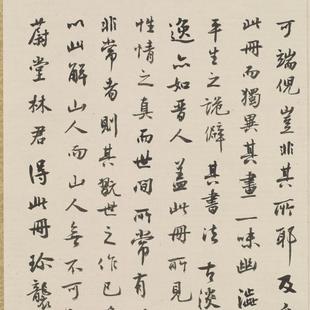 可端倪豈非其所耶及
此冊而獨異其畫一味幽澁
平生之詭僻其書法古淡
逸亦如晉人蓋此冊所見
性情之真而世間所常有
非常者則其翫世之作已
以此解山人而山人無不可
蔚堂林君得此冊珍襲